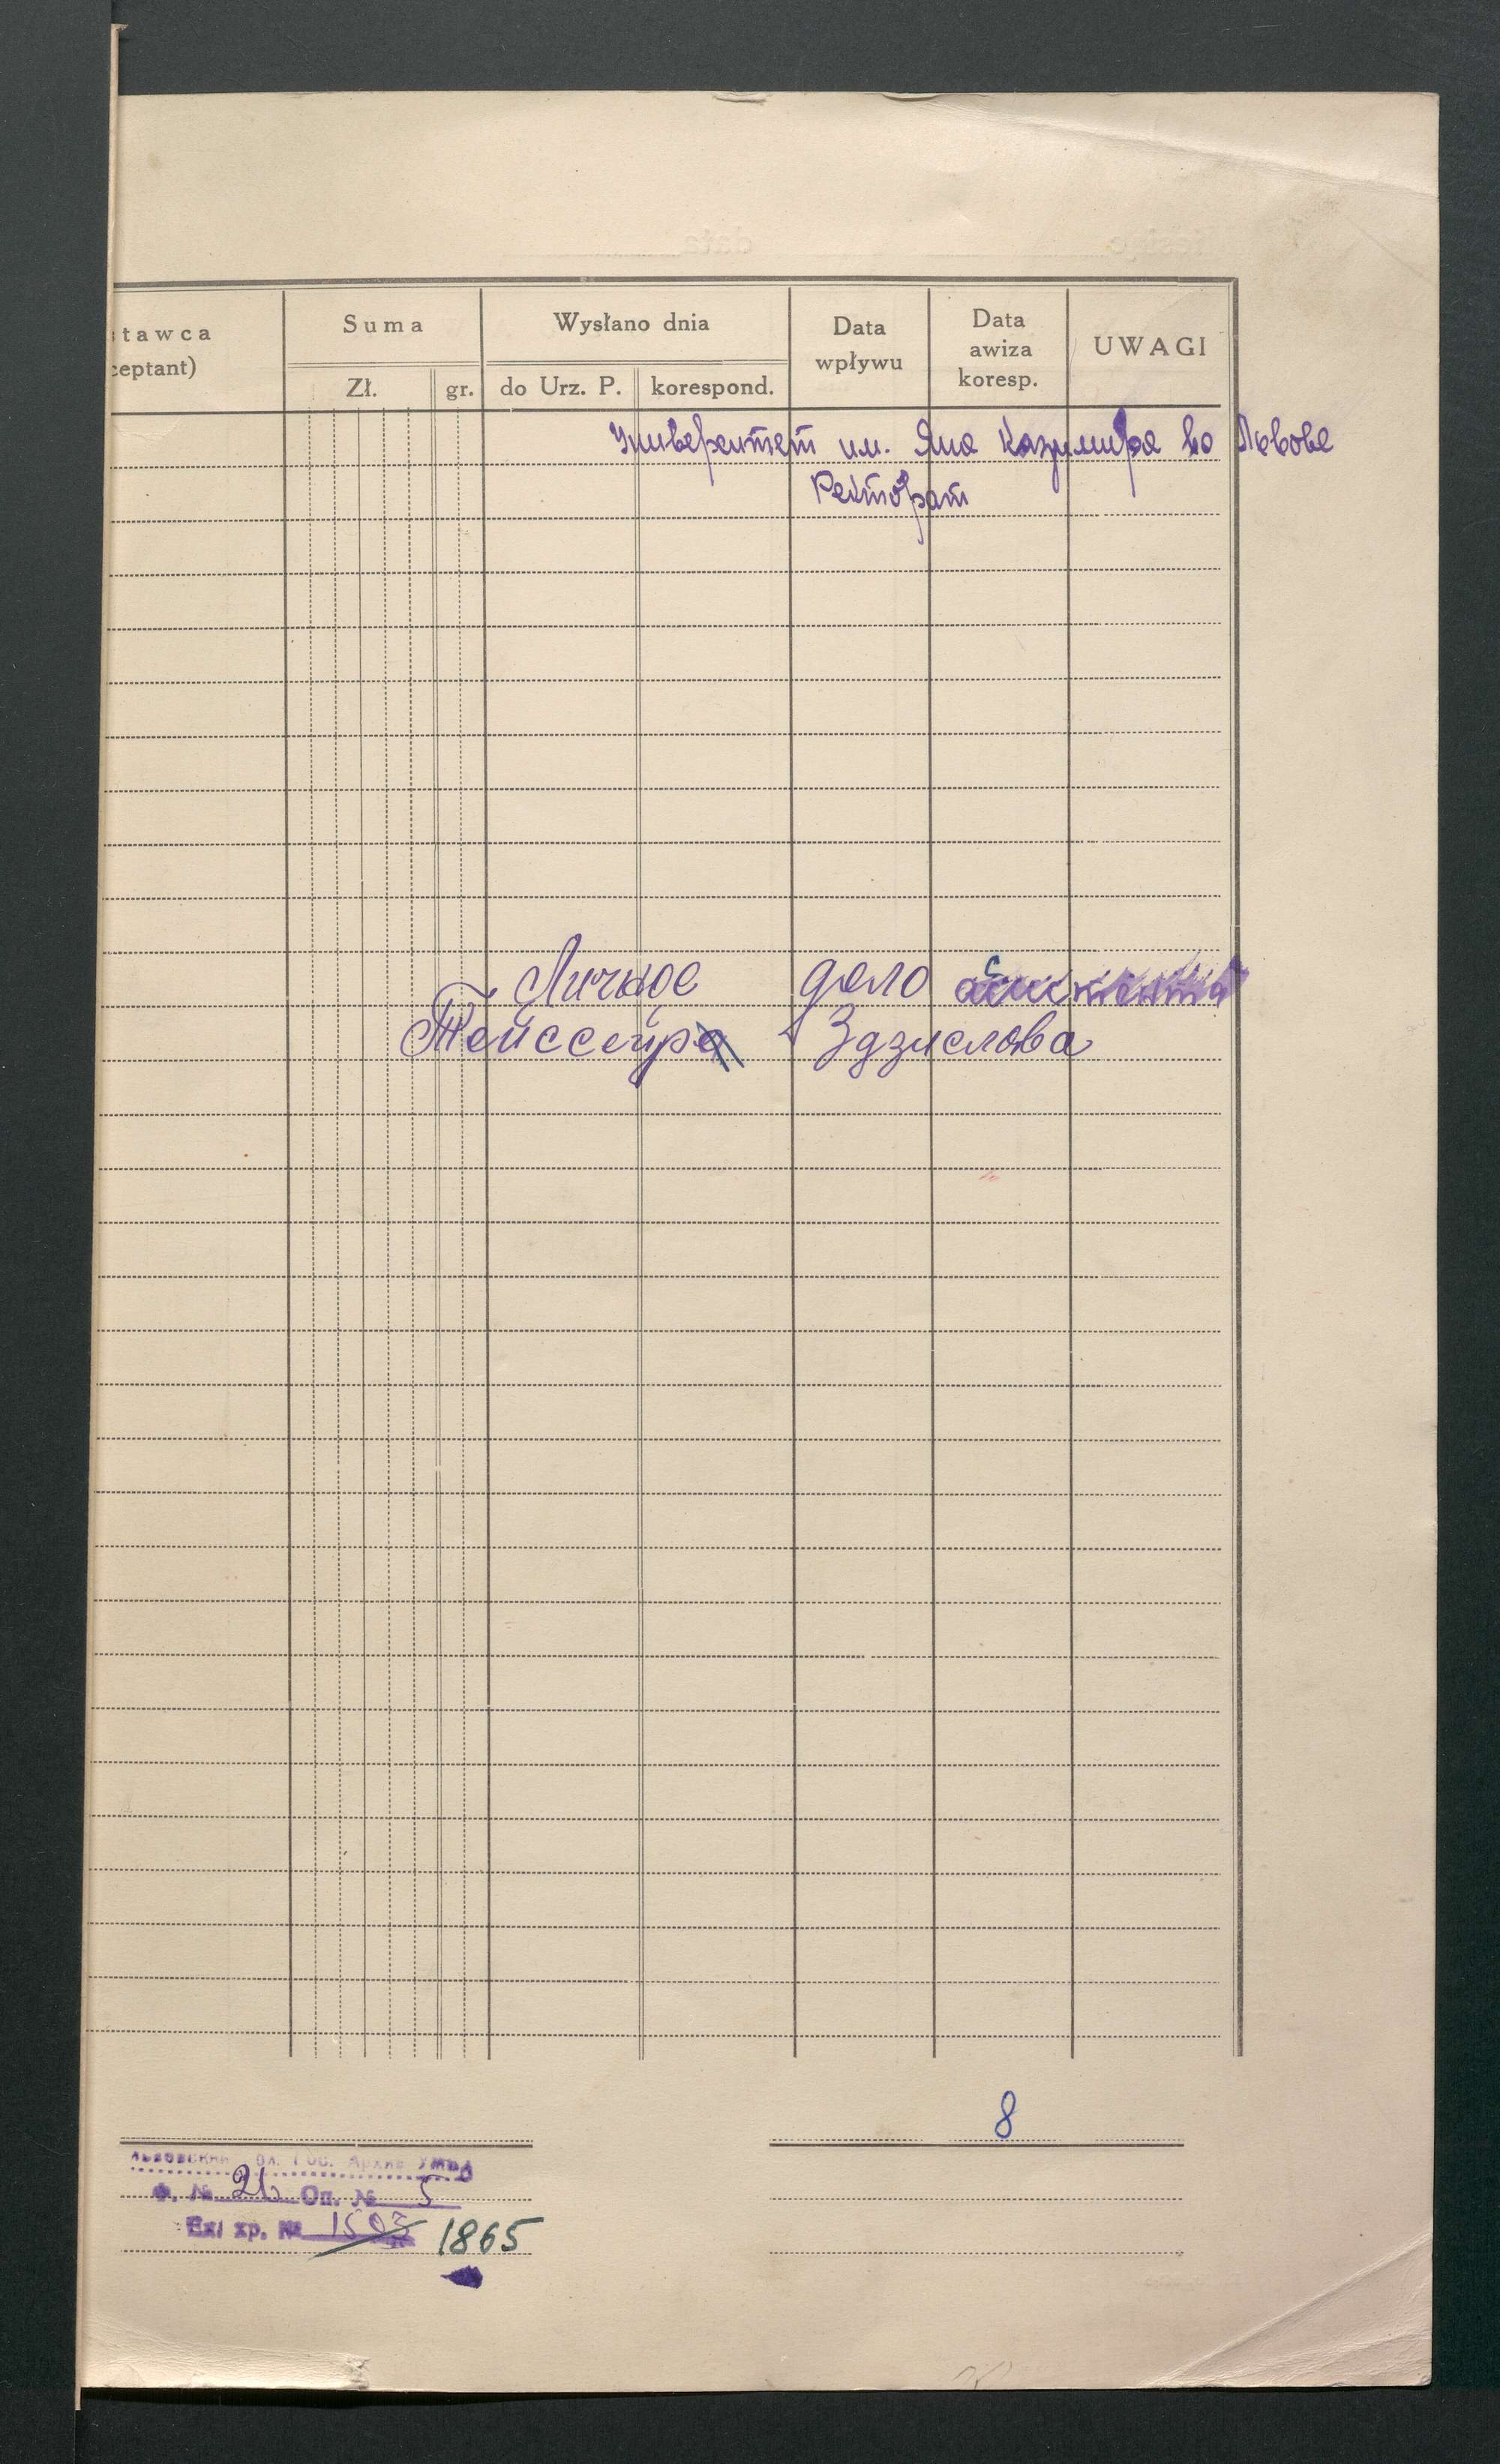 tawca
ceptant)
Suma
Zł.
gr.
Wysłano dnia
do Urz. P.
korespond.
Data
wpływu
Data
awiza
koresp.
UWAGI
Университет им. Яна Казимира во Львове
Ректорат
Личное дело
Тейссейре Здзислова
8
Львовский обл. Гос. Архив УМВД
Ф. № 26 Оп. № 5
Ед. хр. № 1503 1865